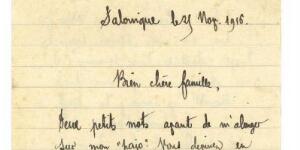 Salonique le 25 Nov. 1916.
Bien chère famille,
Deux petits mots avant de m'allonger
sur mon "pajo" Vous donner en